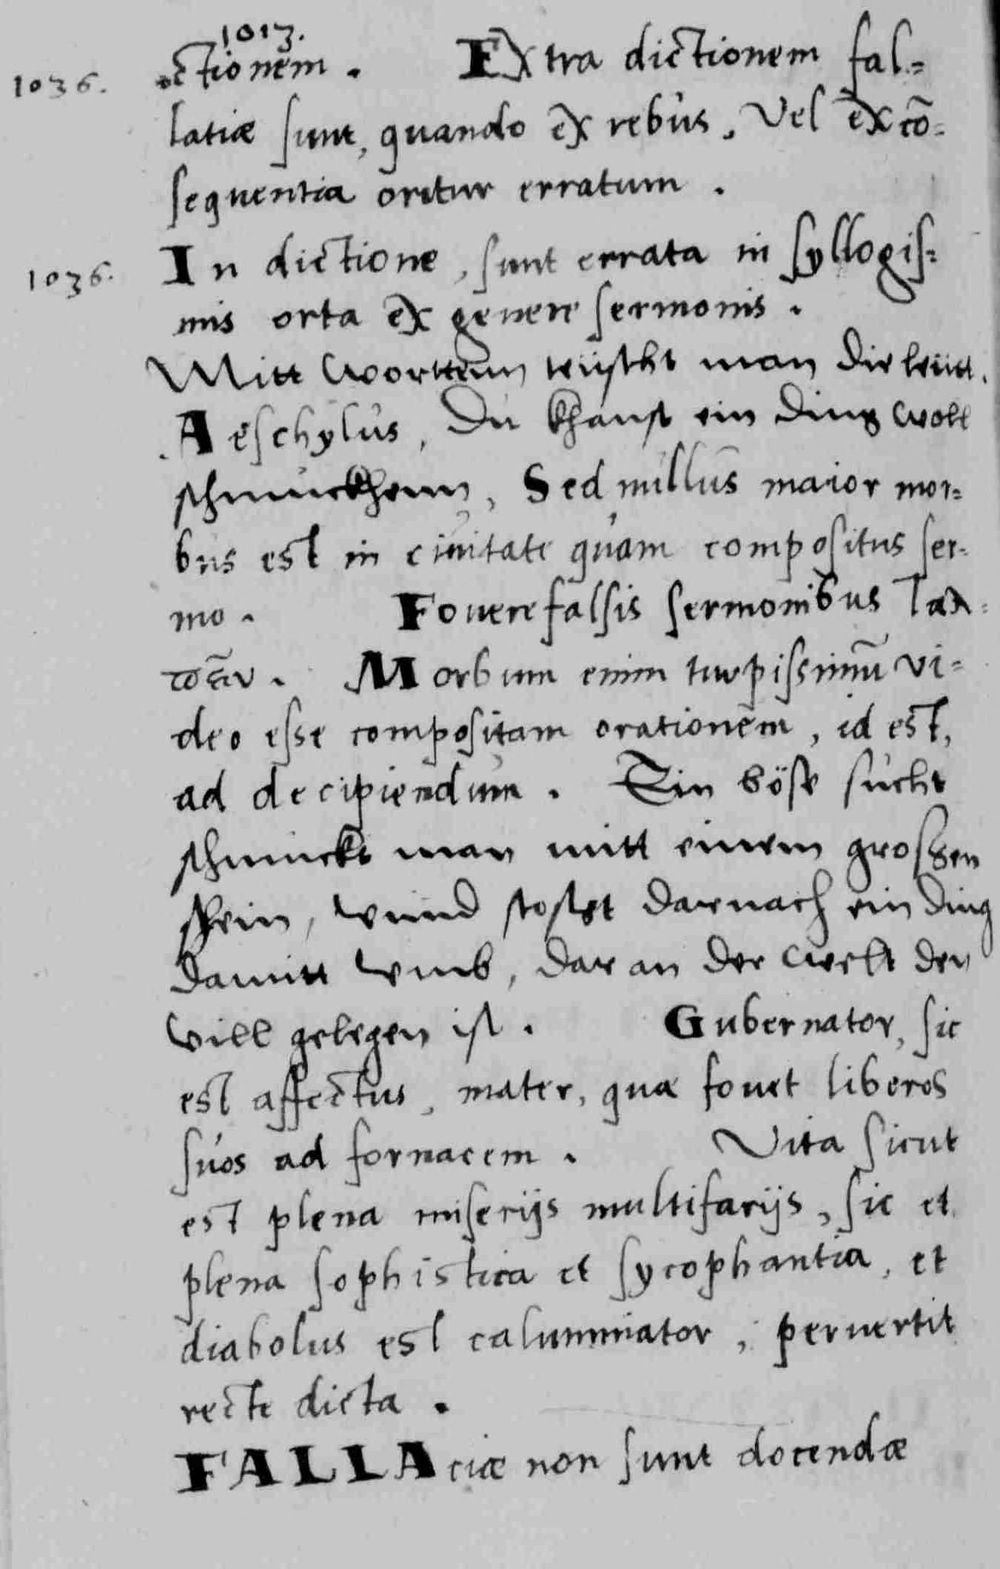 1013.
1036. ctionem. Extra dictionem fal=
latiæ sunt, quando ex rebus, Vel ex cō=
sequentia oritur erratum.
1036. In dictione, sunt errata in syllogis=
mis orta ex genere sermonis.
Mitt Wortten teuscht man die leutt.
Aeschylus, Du khanst ein ding woll
schmuckhenn, Sed nullus maior mor=
bus est in ciuitate quam compositus ser=
mo. Fovere falsis sermonibus
Morbum enim turpissimū vi=
deo esse compositam orationem, id est,
ad decipiendum. Ein böse sucht
schmuckt man mitt einem grossen
schein, vnnd stosset darnach ein ding
damitt vmb, dar an der welt den
vill gelegen ist. Gubernator, sic
est affectus, mater, quæ fouet liberos
suos ad fornacem. Vita sicut
est plena miserijs multifarijs, sic et
plena sophistica et sycophantia, et
diabolus est calumniator, peruertit
recte dicta.
FALLAciæ non sunt docendæ